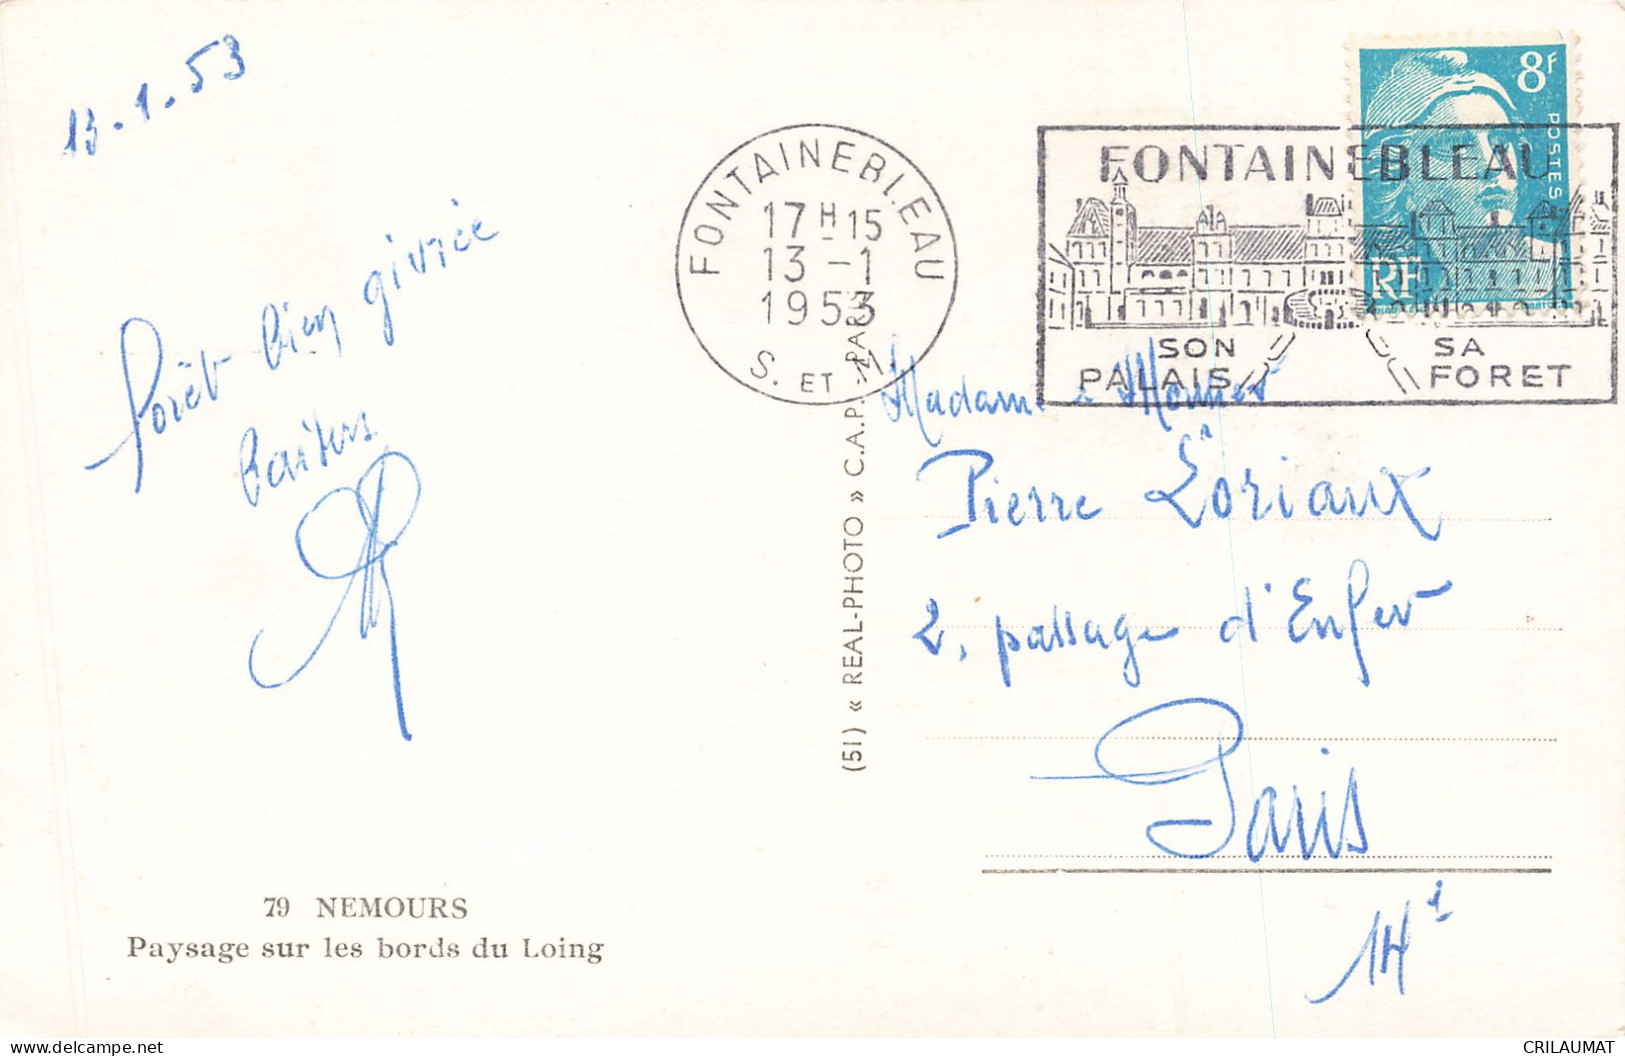 13.1.53
Forêt bien givrée
baisers
79 NEMOURS
Paysage sur les bords du Loing
(51) « REAL-PHOTO » C.A.P. PARIS
FONTAINEBLEAU
17H15
13 -1
1953
S. ET M.
FONTAINEBLEAU
SON PALAIS
SA FORET
8F
POSTES
RF
Madame &
Pierre Loriaux
2, passage d'Enfer
Paris
14e
CRILAUMAT